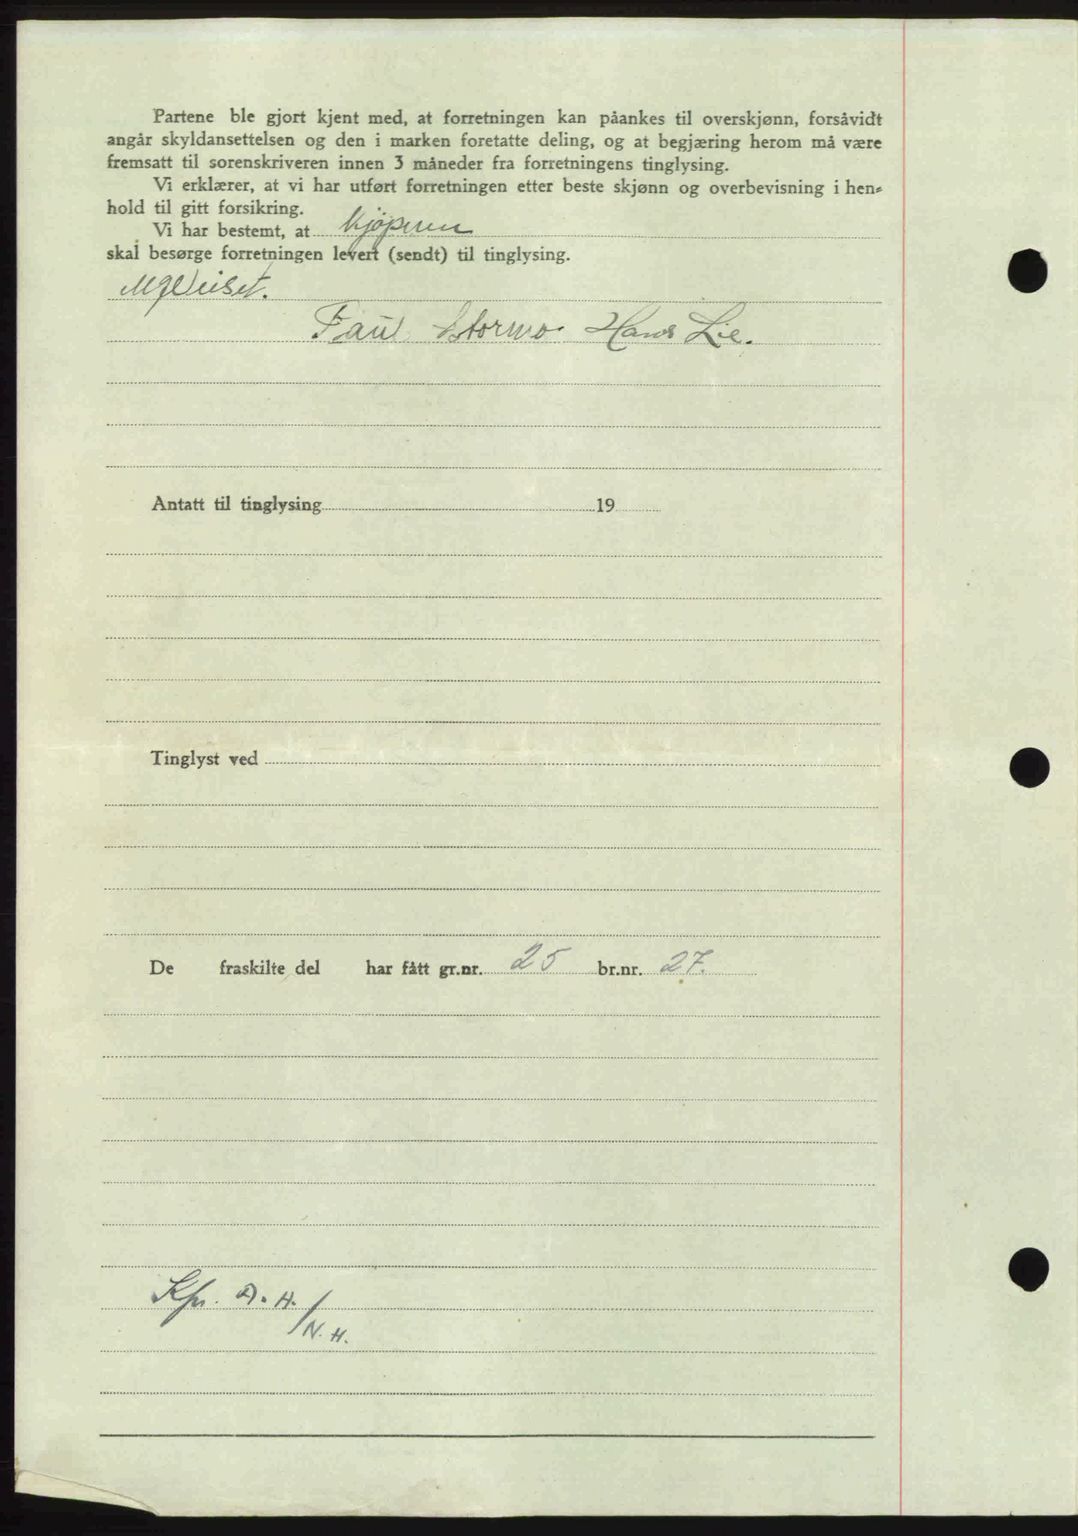 Partene ble gjort kjent med, at forretningen kan påankes til overskjønn, forsåvidt
angår skyldansettelsen og den i marken foretatte deling, og at begjæring herom må være
fremsatt til sorenskriveren innen 3 måneder fra forretningens tinglysing.
Vi erklærer, at vi har utført forretningen etter beste skjønn og overbevisning i hen-
hold til gitt forsikring.
Vi har bestemt, at kjøperen
skal besørge forretningen levert (sendt) til tinglysing.
Paul Stormo. Hans Lie.
Antatt til tinglysing 19
Tinglyst ved
De fraskilte del har fått gr.nr. 25 br.nr. 27.
Kpr. A. H.
/N. H.